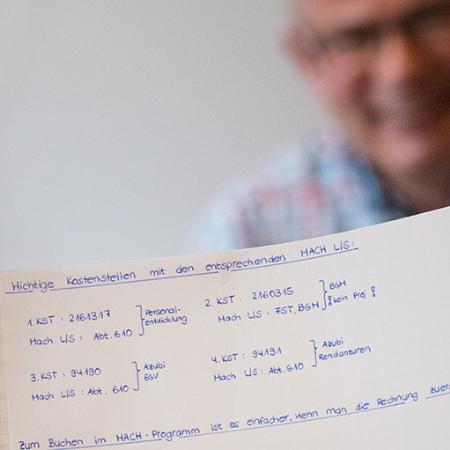 Wichtige Kostenstellen mit den entsprechenden MACH L/S:
1. KST : 2161317
Mach L/S : Abt. 610
Personal-
entwicklung
2. KST : 2160315
Mach L/S : FST. BGM
BGM
! kein Pro !
3. KST : 94190
Mach L/S : Abt. 610
Azubi
EGV
4. KST : 94191
Mach L/S : Abt. 610
Azubi
Rendanturen
Zum Buchen im MACH-Programm ist es einfacher, wenn man die Rechnung zuer